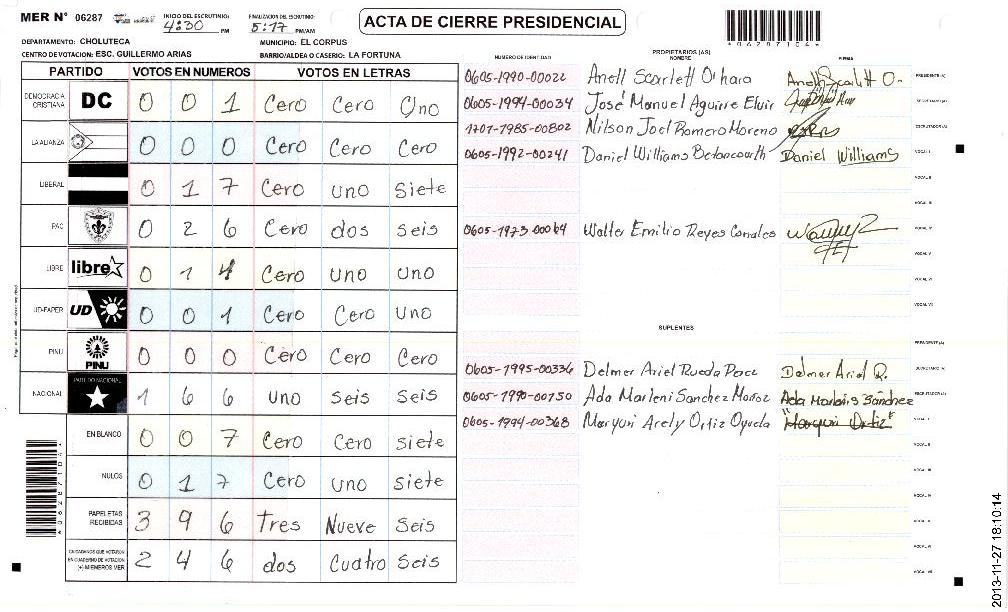 MER Nº 06287
INICIO DEL ESCRUTINIO: 4:30 PM
FINALIZACION DEL ESCRUTINIO: 5:17 PM/AM
ACTA DE CIERRE PRESIDENCIAL
*06287104*
DEPARTAMENTO: CHOLUTECA
MUNICIPIO: EL CORPUS
CENTRO DE VOTACION: ESC. GUILLERMO ARIAS
BARRIO/ALDEA O CASERIO: LA FORTUNA
PARTIDO VOTOS EN NUMEROS VOTOS EN LETRAS
DEMOCRACIA CRISTIANA DC 0 0 1 Cero Cero Uno
LA ALIANZA 0 0 0 Cero Cero Cero
LIBERAL 0 1 7 Cero uno Siete
PAC 0 2 6 Cero dos seis
LIBRE libre 0 1 4 Cero uno uno
UD-FAPER UD 0 0 1 Cero Cero uno
PINU PINU 0 0 0 Cero Cero Cero
NACIONAL PARTIDO NACIONAL 1 6 6 uno Seis Seis
EN BLANCO 0 0 7 Cero Cero siete
NULOS 0 1 7 Cero uno siete
PAPELETAS RECIBIDAS 3 9 6 Tres Nueve Seis
CIUDADANOS QUE VOTARON EN CUADERNO DE VOTACION (+) MIEMBROS MER 2 4 6 dos Cuatro Seis
NUMERO DE IDENTIDAD
PROPIETARIOS (AS)
NOMBRE
FIRMA
0605-1990-00022 Anell Scarlett O'hara PRESIDENTE (A)
0605-1994-00034 José Manuel Aguirre Elvir SECRETARIO (A)
1701-1985-00802 Nilson Joel Romero Moreno ESCRUTADOR (A)
0605-1992-00241 Daniel Williams Betancourth Daniel Williams VOCAL I
VOCAL II
VOCAL III
0605-1973-00064 Walter Emilio Reyes Canales VOCAL IV
VOCAL V
VOCAL VI
VOCAL VII
SUPLENTES
PRESIDENTE (A)
0605-1995-00336 Delmer Ariel Rueda Delmer Ariel R. SECRETARIO (A)
0605-1990-00750 Ada Marleni Sanchez Ada Marleni Sanchez ESCRUTADOR (A)
0605-1994-00368 Maryuri Arely Ortiz Maryuri Ortiz VOCAL I
VOCAL II
VOCAL III
VOCAL IV
VOCAL V
VOCAL VI
VOCAL VII
2013-11-27 18:10:14